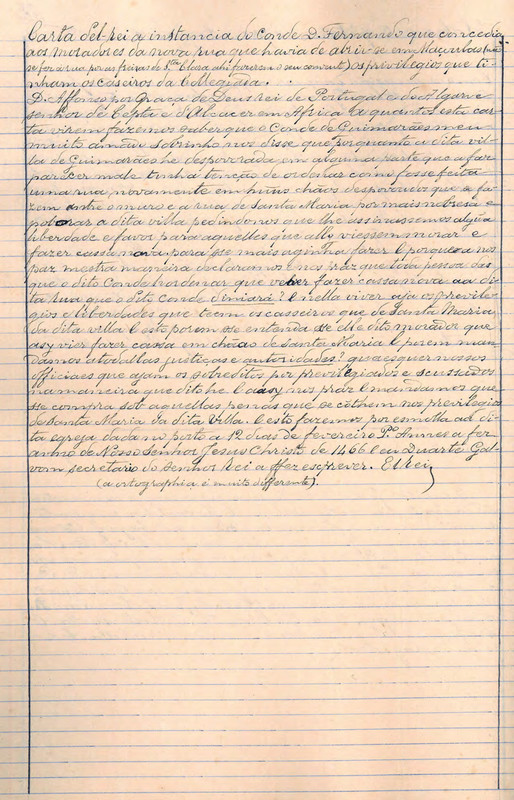 Carta d'el-rei a instancia do Conde D. Fernando que concedia
aos moradores da nova rua que havia de abrir-se em
se for a rua que as freiras de Sta Clara ahi fizeram o seu convento) os privilegios que ti-
nham os caseiros da Collegiada.
D. Affonso por Graça de Deus rei de Portugal e do Algarve
senhor de Cepta e d'Alcacer em Africa. A quantos esta car-
ta virem fazemos saber que o Conde de Guimarães meu
muito amado sobrinho nos disse que porquanto a dita vil-
la de Guimarães he despovorada em alguma parte que a faz
parecer male tinha tenção de ordenar como fosse feita
uma rua novamente em huns chãos despovorados que se fa-
zem antre o muro e a rua de Santa Maria por mais nobresa e
poborar a dita villa pedindo nos que lhe assinassemos algũa
liberdade e favor para aquelles que alli viessem morar e
fazer cassa mora para se mais aginha fazer E porque a nos
praz mestra maneira declaramos E nos praz que toda pessoa des
que o dito Conde hordenar que vetier fazer cassa nova na di-
ta rua que o dito Conde diviará? E n'ella viver aja os previle-
gios e liberdades que teem os casseiros que de Santa Maria
da dita villa E esto porem se entenda se elle dito morador que
asy vier fazer cassa em chãos de Santa Maria E porem man-
damos a todallas justiças e autoridades? quaesquer nossos
officiaes que ajam os sobreditos por previlegiados e scussados
na maneira que dito he E asy nos praz E mandamos que
se compra sob aquellas penas que se cothem nos previlegios
de Santa Maria da dita Villa. E esto fazemos por esmilla aa di-
ta egreja dada no porto a 12 dias de fevereiro P.º Annes a fez
anno de Nosso Senhor Jesus Christo de 1466 E eu Duarte Gal-
vom secretario do Senhor Rei a ffez escprever. El Rei
(a ortographia é muito differente).